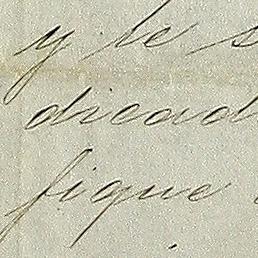 y le s
dicad
fique